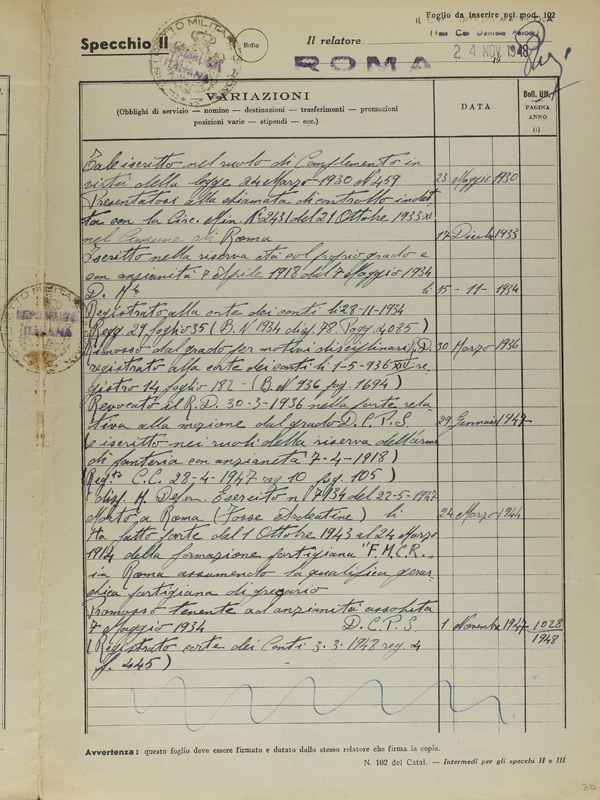 Foglio da inserire nel mod. 102
Specchio II
Bollo
Il relatore
24 NOV. 1948
ROMA
VARIAZIONI
(Obblighi di servizio — nomine — destinazioni — trasferimenti — promozioni
posizioni varie — stipendi — ecc.)
DATA
Boll. Uff.
PAGINA
ANNO
(i)
Tale iscritto nel ruolo di Complemento in
virtù della legge 24 Marzo 1930 N 459 23 Maggio 1930
Presentatosi alla chiamata di controllo indet
ta con la Circ. Min. N° 2431 del 21 Ottobre 1933 XI
nel Comune di Roma 17 Dicembre 1933
Iscritto nella riserva età col proprio grado e
con anzianità 7 Aprile 1918 dal 7 Maggio 1934
D. M. li 15-11-1934
Registrato alla corte dei conti li 28-11-1934
Reg. 29 foglio 35 (B.N 1934 disp. 78 pag 4085)
Rimosso dal grado per motivi disciplinari R.D. 30 Marzo 1936
registrato alla corte dei conti li 1-5-936 XIV re
gistro 14 foglio 182 - (B.N 936 pag. 1694)
Revocato il R.D. 30-3-1936 nella parte rela
tiva alla rimozione dal grado D.C.P.S. 29 Gennaio 1947
(e iscritto nei ruoli della riserva dell'arma
di fanteria con anzianità 7-4-1918)
(Reg.to C.C. 28-4-1947 reg 10 fog. 105)
(disp. M. Difesa Esercito n 7934 del 22-5-1947
Morto a Roma (Fosse Ardeatine) li 24 Marzo 1944
Ha fatto parte dal 1 Ottobre 1943 al 24 Marzo
1944 della formazione partigiana "F.M.C.R.
in Roma assumendo la qualifica gerar
chica partigiana di gregario
Promosso tenente ad anzianità assoluta
7 Maggio 1934 D.C.P.S. 1 Novembre 1947 1028
1948
(Registrato corte dei Conti 3-3-1948 reg. 4
f. 445)
Avvertenza: questo foglio deve essere firmato e datato dallo stesso relatore che firma la copia.
N. 102 del Catal. — Intermedi per gli specchi II e III